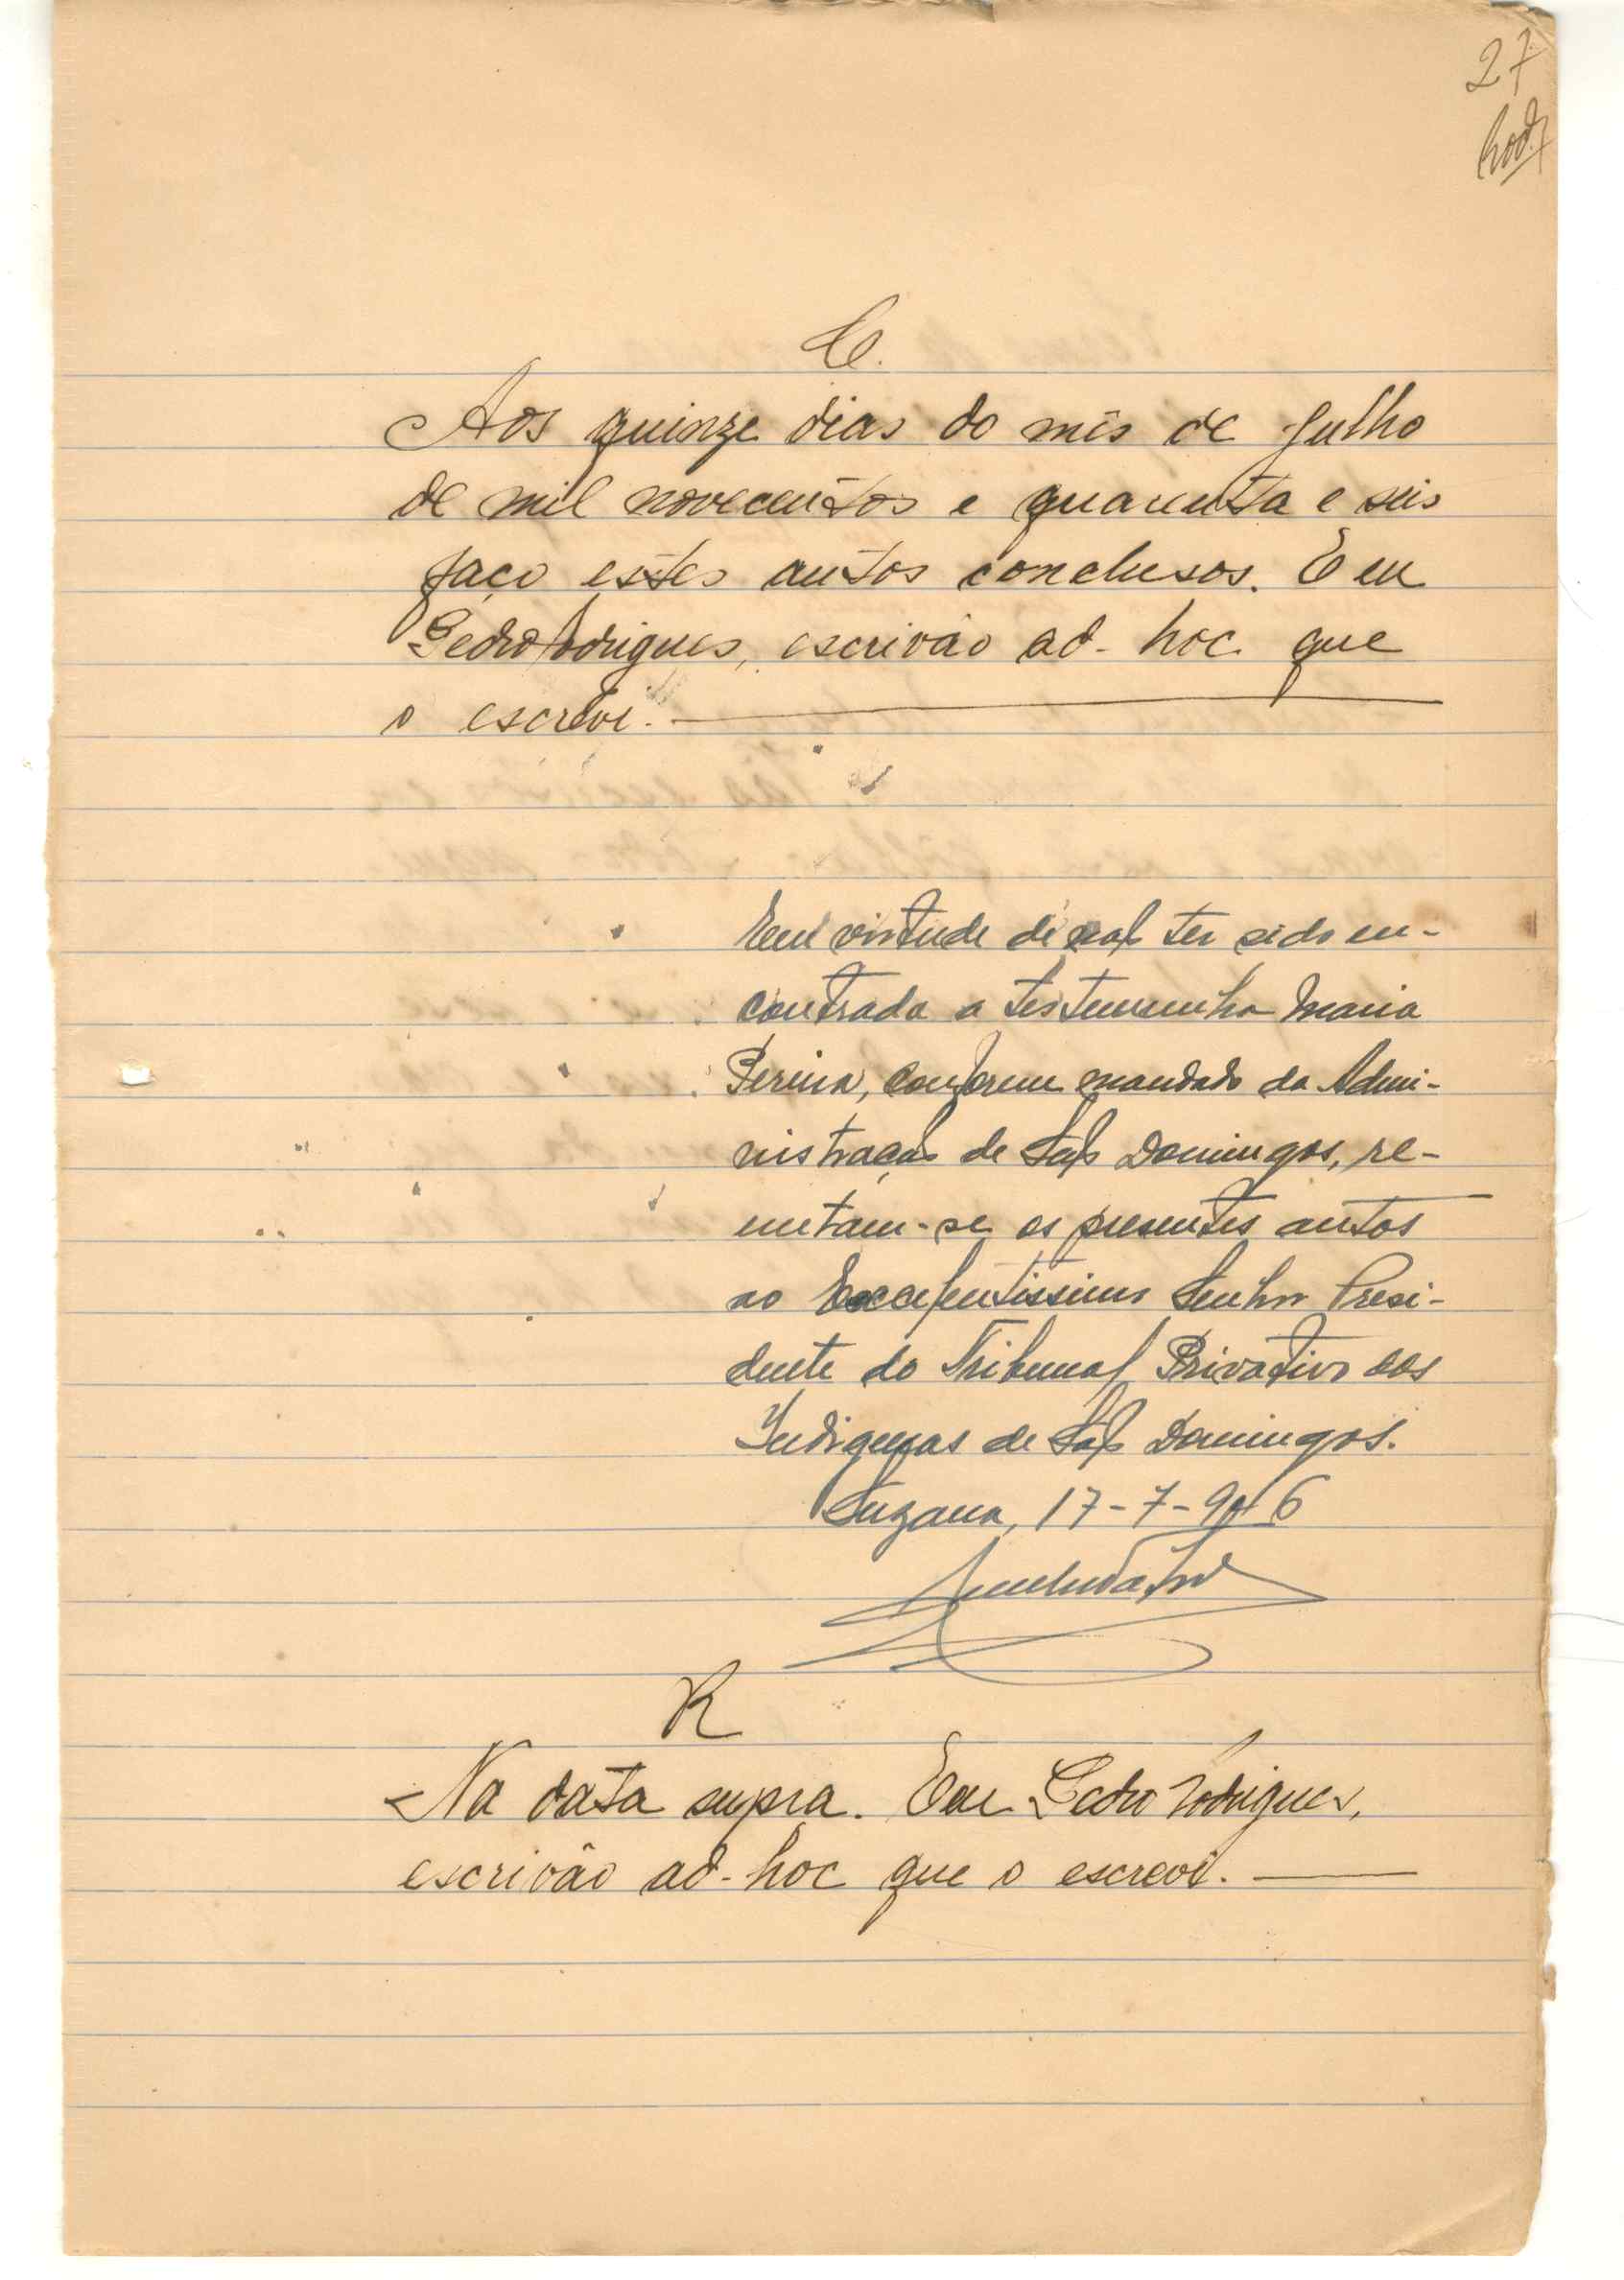 27
Rod.
C.
Aos quinze dias do mês de Julho
de mil novecentos e quarenta e seis
faço estes autos conclusos. E eu
Pedro Rodrigues, escrivão ad-hoc que
o escrevi.
Em virtude de não ter sido en-
contrada a testemunha Maria
Pereira, conforme mandado da Admi-
nistração de São Domingos, re-
metam-se os presentes autos
ao Excelentíssimo Senhor Presi-
dente do Tribunal Privativo dos
Indigenas de São Domingos.
Suzana, 17-7-946
R
Na data supra. Eeu Pedro Rodrigues,
escrivão ad-hoc que o escrevi.